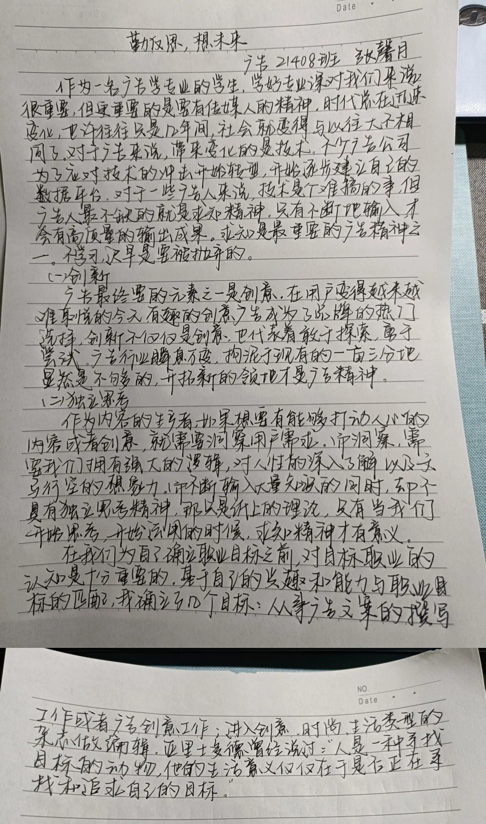 Date
勤反思，想未来
广告21408班 张馨月
作为一名广告学专业的学生，学好专业课对我们来说
很重要，但更重要的是要有传媒人的精神，时代总在迅速
变化，也许往往只是几年间，社会就变得与以往大不相
同了，对于广告来说，带来变化的是技术，不少广告公司
为了应对技术的冲击开始转型，开始逐步建立自己的
数据平台，对于一些广告人来说，技术是个难搞的事，但
广告人最不缺的就是求知精神，只有不断地输入才
会有高质量的输出成果。求知是最重要的广告精神之
一。不学习，迟早是要被抛弃的。
(一)创新
广告最终要的元素之一是创意，在用户变得越来越
难取悦的今天有趣的创意广告成为了品牌的热门
选择，创新不仅仅是创意，也代表着敢于探索，勇于
尝试，广告行业瞬息万变，拘泥于现有的一亩三分地
显然是不够的，开拓新的领地才是广告精神。
(二)独立思考
作为内容的生产者，如果想要有能够打动人心的
内容或者创意，就需要洞察用户需求，而洞察，需
要我们拥有强大的逻辑，对人性的深入了解以及天
马行空的想象力，而不断输入大量知识的同时，却不
具有独立思考精神，那只是纸上的理论，只有当我们
开始思考，开始运用的时候，求知精神才有意义。
在我们为自己确立职业目标之前，对目标职业的
认知是十分重要的，基于自己的兴趣和能力与职业目
标的匹配，我确立了几个目标：从事广告文案的撰写
NO
Date
工作或者广告创意工作；进入创意、时尚、生活类型的
杂志做编辑。亚里士多德曾经说过："人是一种寻找
目标的动物，他的生活意义仅仅在于是否正在寻
找和追求自己的目标。"